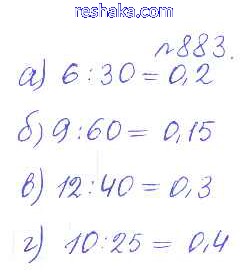 reshaka.com
№883.
а) 6:30 = 0,2
б) 9:60 = 0,15
в) 12:40 = 0,3
г) 10:25 = 0,4